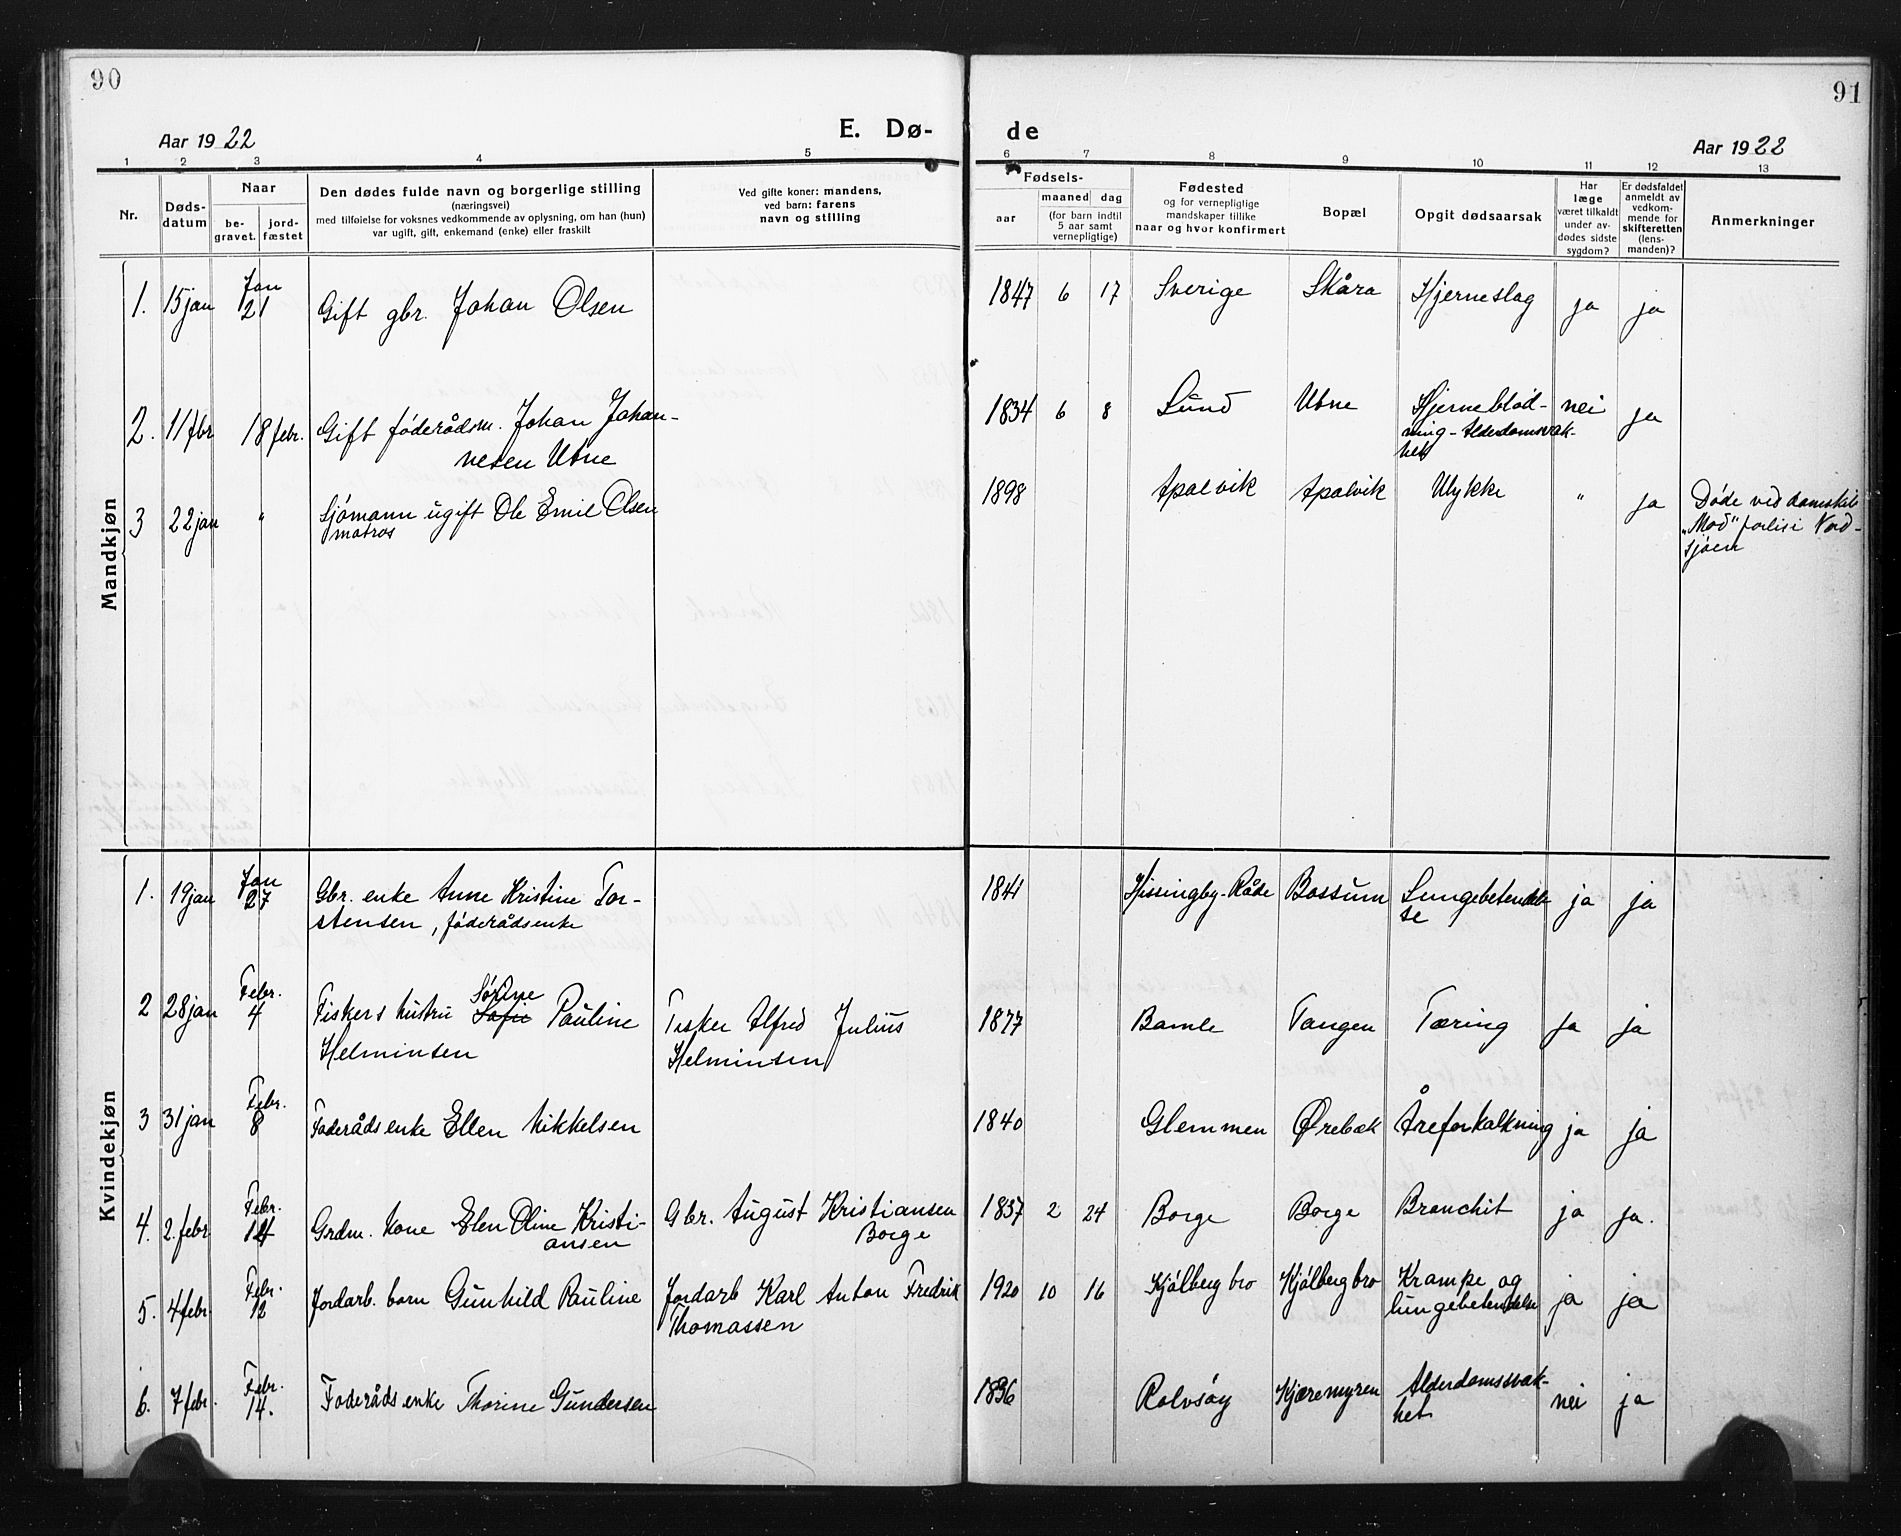 90
91
E. Dø-
de
Aar 1922
Aar 1922
1 2 3 4 5 6 7 8 9 10 11 12 13
Nr.
Døds-
datum
Naar
be-
gravet.
jord-
fæstet
Den dødes fulde navn og borgerlige stilling
(næringsvei)
med tilføielse for voksnes vedkommende av oplysning, om han (hun)
var ugift, gift, enkemand (enke) eller fraskilt
Ved gifte koner: mandens,
ved barn: farens
navn og stilling
Fødsels-
aar
maaned
dag
(for barn indtil
5 aar samt
vernepligtige)
Fødested
og for vernepligtige
mandskaper tillike
naar og hvor konfirmert
Bopæl
Opgit dødsaarsak
Har
læge
været tilkaldt
under av-
dødes sidste
sygdom?
Er dødsfaldet
anmeldt av
vedkom-
mende for
skifteretten
(lens-
manden)?
Anmerkninger
Mandkjøn
1. 15 jan Jan 21 Gift gbr. Johan Olsen 1847 6 17 Sverige Skåra Hjerneslag ja ja
2. 11 fbr 18 febr. Gift føderådsm. Johan Johan-
nesen Utne 1834 6 8 Lund Utne Hjerneblød-
ning - Alderdomsvak-
het nei ja
3 22 jan " Sjømann ugift Ole Emil Olsen
matros 1898 Apalvik Apalvik Ulykke " ja Døde ved damskib
"Mod" forlis i Nord-
sjøen
Kvindekjøn
1. 19 jan Jan 27 Gbr. enke Anne Kristine Tor-
stensen, føderådsenke 1841 Hissingby-Råde Bossum Lungebetendel-
se ja ja
2 28 jan Febr. 4 Fiskers hustru Sofie Sørine Pauline
Helminsen Fisker Alfred Julius
Helminsen 1877 Bamle Tangen Tæring ja ja
3 31 jan Febr. 8 Føderåds enke Ellen Mikkelsen 1840 Glemmen Ørebæk Åreforkalkning ja ja
4. 2. febr. Febr. Grdm. kone Elen Oline Kristi-
ansen Gbr. August Kristiansen
Borge 1837 2 24 Borge Borge Bronchit ja ja.
5. 4 febr. Febr. 12 Jordarb. barn Gunhild Pauline Jordarb Karl Anton Fredrik
Thomassen 1920 10 16 Kjølberg bro Kjølberg bro Krampe og
lungebetendelse ja ja
6. 7 febr. Febr. 14. Føderåds enke Thorine Gundersen 1836 Rolvsøy Kjæremyren Alderdomssvak-
het nei ja